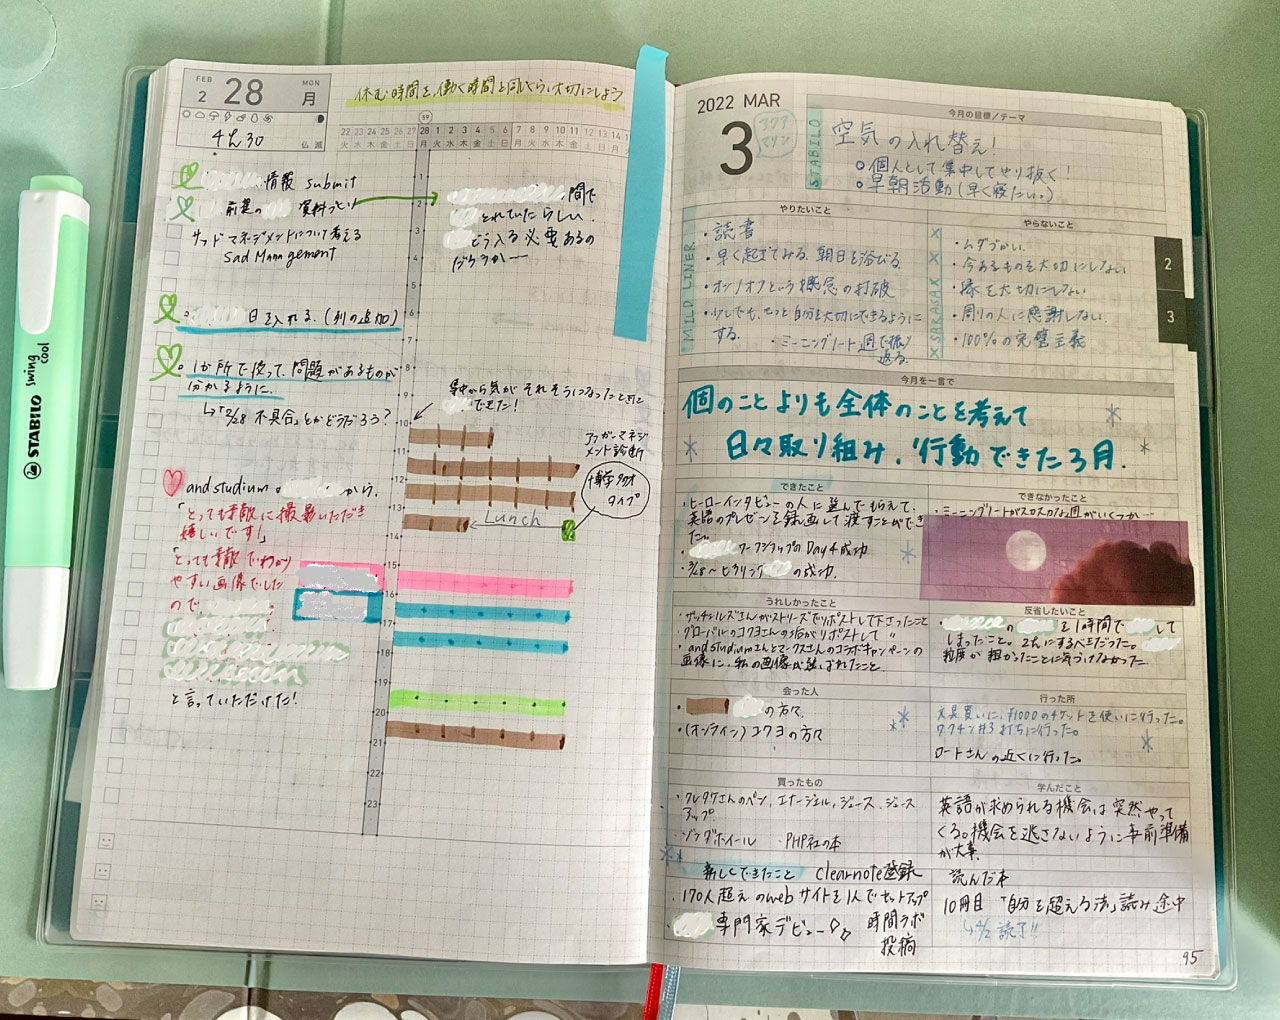 STABILO swing cool
FEB 2 28 MON 月
4:30 仏滅
休む時間を、働く時間と同じくらい大切にしよう
59
22 23 24 25 26 27 28 1 2 3 4 5 6 7 8 9 10 11 12 13 14
火 水 木 金 土 日 月 火 水 木 金 土 日 月 火 水 木 金 土 日 月
情報 submit
前提の 資料づくり
間で
とれていたらしい。
どう入る必要あるの
だろうかー
サッドマネジメントについて考える
Sad Management
日を入れる。(列の追加)
1か所で使って、問題があるものが
分かるように。
↳「2/28 不具合」とかどうだろう?
集中から気がそれそうになったときに
できた!
アンガーマネジ
メント診断
博学多才
タイプ
Lunch
and studium から、
「とっても素敵に撮影いただき
嬉しいです!」
「とっても素敵でわかり
やすい画像でした
ので
と言っていただけた!
1
2
3
4
5
6
7
8
9
10
11
12
13
14
15
16
17
18
19
20
21
22
23
2022 MAR
3
アクア
マリン
STABILO
今月の目標/テーマ
空気の入れ替え!
○個人として集中してやり抜く!
○早朝活動(早く寝たい。)
やりたいこと
MILD LINER
・読書
・早く起きてみる。朝日を浴びる。
・オン/オフという概念の打破
・少しでも、もっと自分を大切にできるように
する。 ・ミーニングノート週で振り
返る。
やらないこと
SARASA
・ムダづかい。
・今あるものを大切にしない
・縁を大切にしない
・周りの人に感謝しない。
・100%の完璧主義
2
3
今月を一言で
個のことよりも全体のことを考えて
日々取り組み、行動できた3月。
できたこと
・ヒーローインタビューの人に選んでもらえて、
英語のプレゼンを録画して渡すことができ
た。
・ ワークショップのDay4成功
・3/28〜ヒアリング の成功。
できなかったこと
・ミーニングノートがスカスカな週がいくつかー
うれしかったこと
・サッチェルズさんがストーリーズでリポストして下さったこと
グローバルのコクヨさんの活がリポストして 〃
・and studiumさんとマックスさんのコラボキャンペーンの
画像に、私の画像が選ばれたこと。
反省したいこと
・ の を1時間で して
しまったこと。2hにするべきだった。
粒度が粗かったことに気づけなかった。
会った人
・ の方々
・(オンライン) コクヨの方々
行った所
文具買いに、¥1000のチケットを使いに行った。
ワクチン#3打ちに行った。
ロートさんの近くに行った。
買ったもの
・クレタケさんのペン、エナージェル、ジュース、ジュース
アップ
・ジブンホイール ・PHP社の本
学んだこと
英語が求められる機会は突然やって
くる。機会を逃さないように事前準備
が大事。
新しくできたこと clearnote登録
・170人超えのwebサイトを1人でセットアップ
・ 専門家デビュー 時間ラボ
投稿
読んだ本
10冊目 「自分を超える法」読み途中
↳4/2 読了!!
95